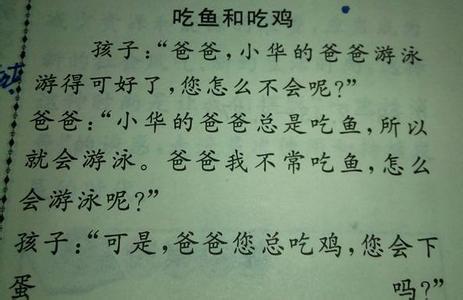 吃鱼和吃鸡
孩子：“爸爸，小华的爸爸游泳
游得可好了，您怎么不会呢？”
爸爸：“小华的爸爸总是吃鱼，所以
就会游泳。爸爸我不常吃鱼，怎么
会游泳呢？”
孩子：“可是，爸爸您总吃鸡，您会下
蛋吗？”